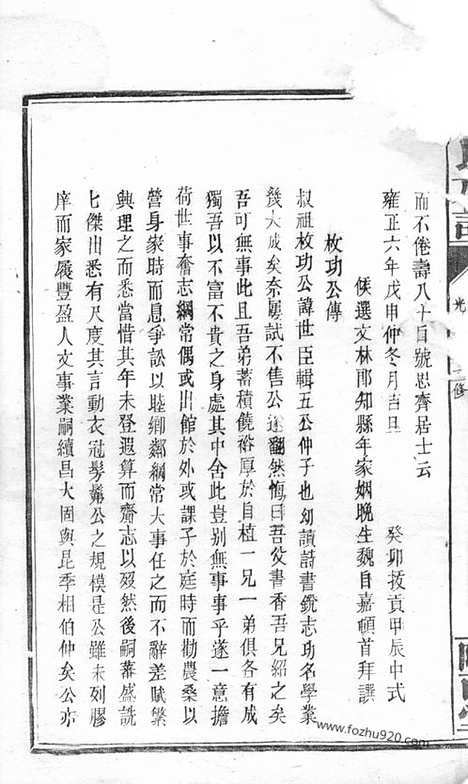 而不倦壽八十自號思齊居士云
雍正六年戊申仲冬月吉旦　癸卯拔貢甲辰中式
候選文林郎知縣年家姻晚生魏自嘉頓首拜譔
枚功公傳
叔祖枚功公諱世臣輯五公仲子也幼讀詩書銳志功名學業
幾大成矣奈屢試不售公遂翻然悔曰吾父書香吾兄紹之矣
吾可無事此且吾弟蓄積饒裕厚於自植一兄一弟俱各有成
獨吾以不富不貴之身處其中舍此豈別無事事乎遂一意擔
荷世事奮志綱常偶或出館於外或課子於庭時而勸農桑以
營身家時而息爭訟以睦鄉鄰綱常大事任之而不辭差賦繁
興理之而悉當惜其年未登遐算而齎志以歿然後嗣蕃盛詵
七傑出悉有尺度其言動衣冠髣髴公之規模是公雖未列膠
庠而家履豐盈人文事業嗣續昌大固與昆季相伯仲矣公亦
光
修
www.fozhu920.com